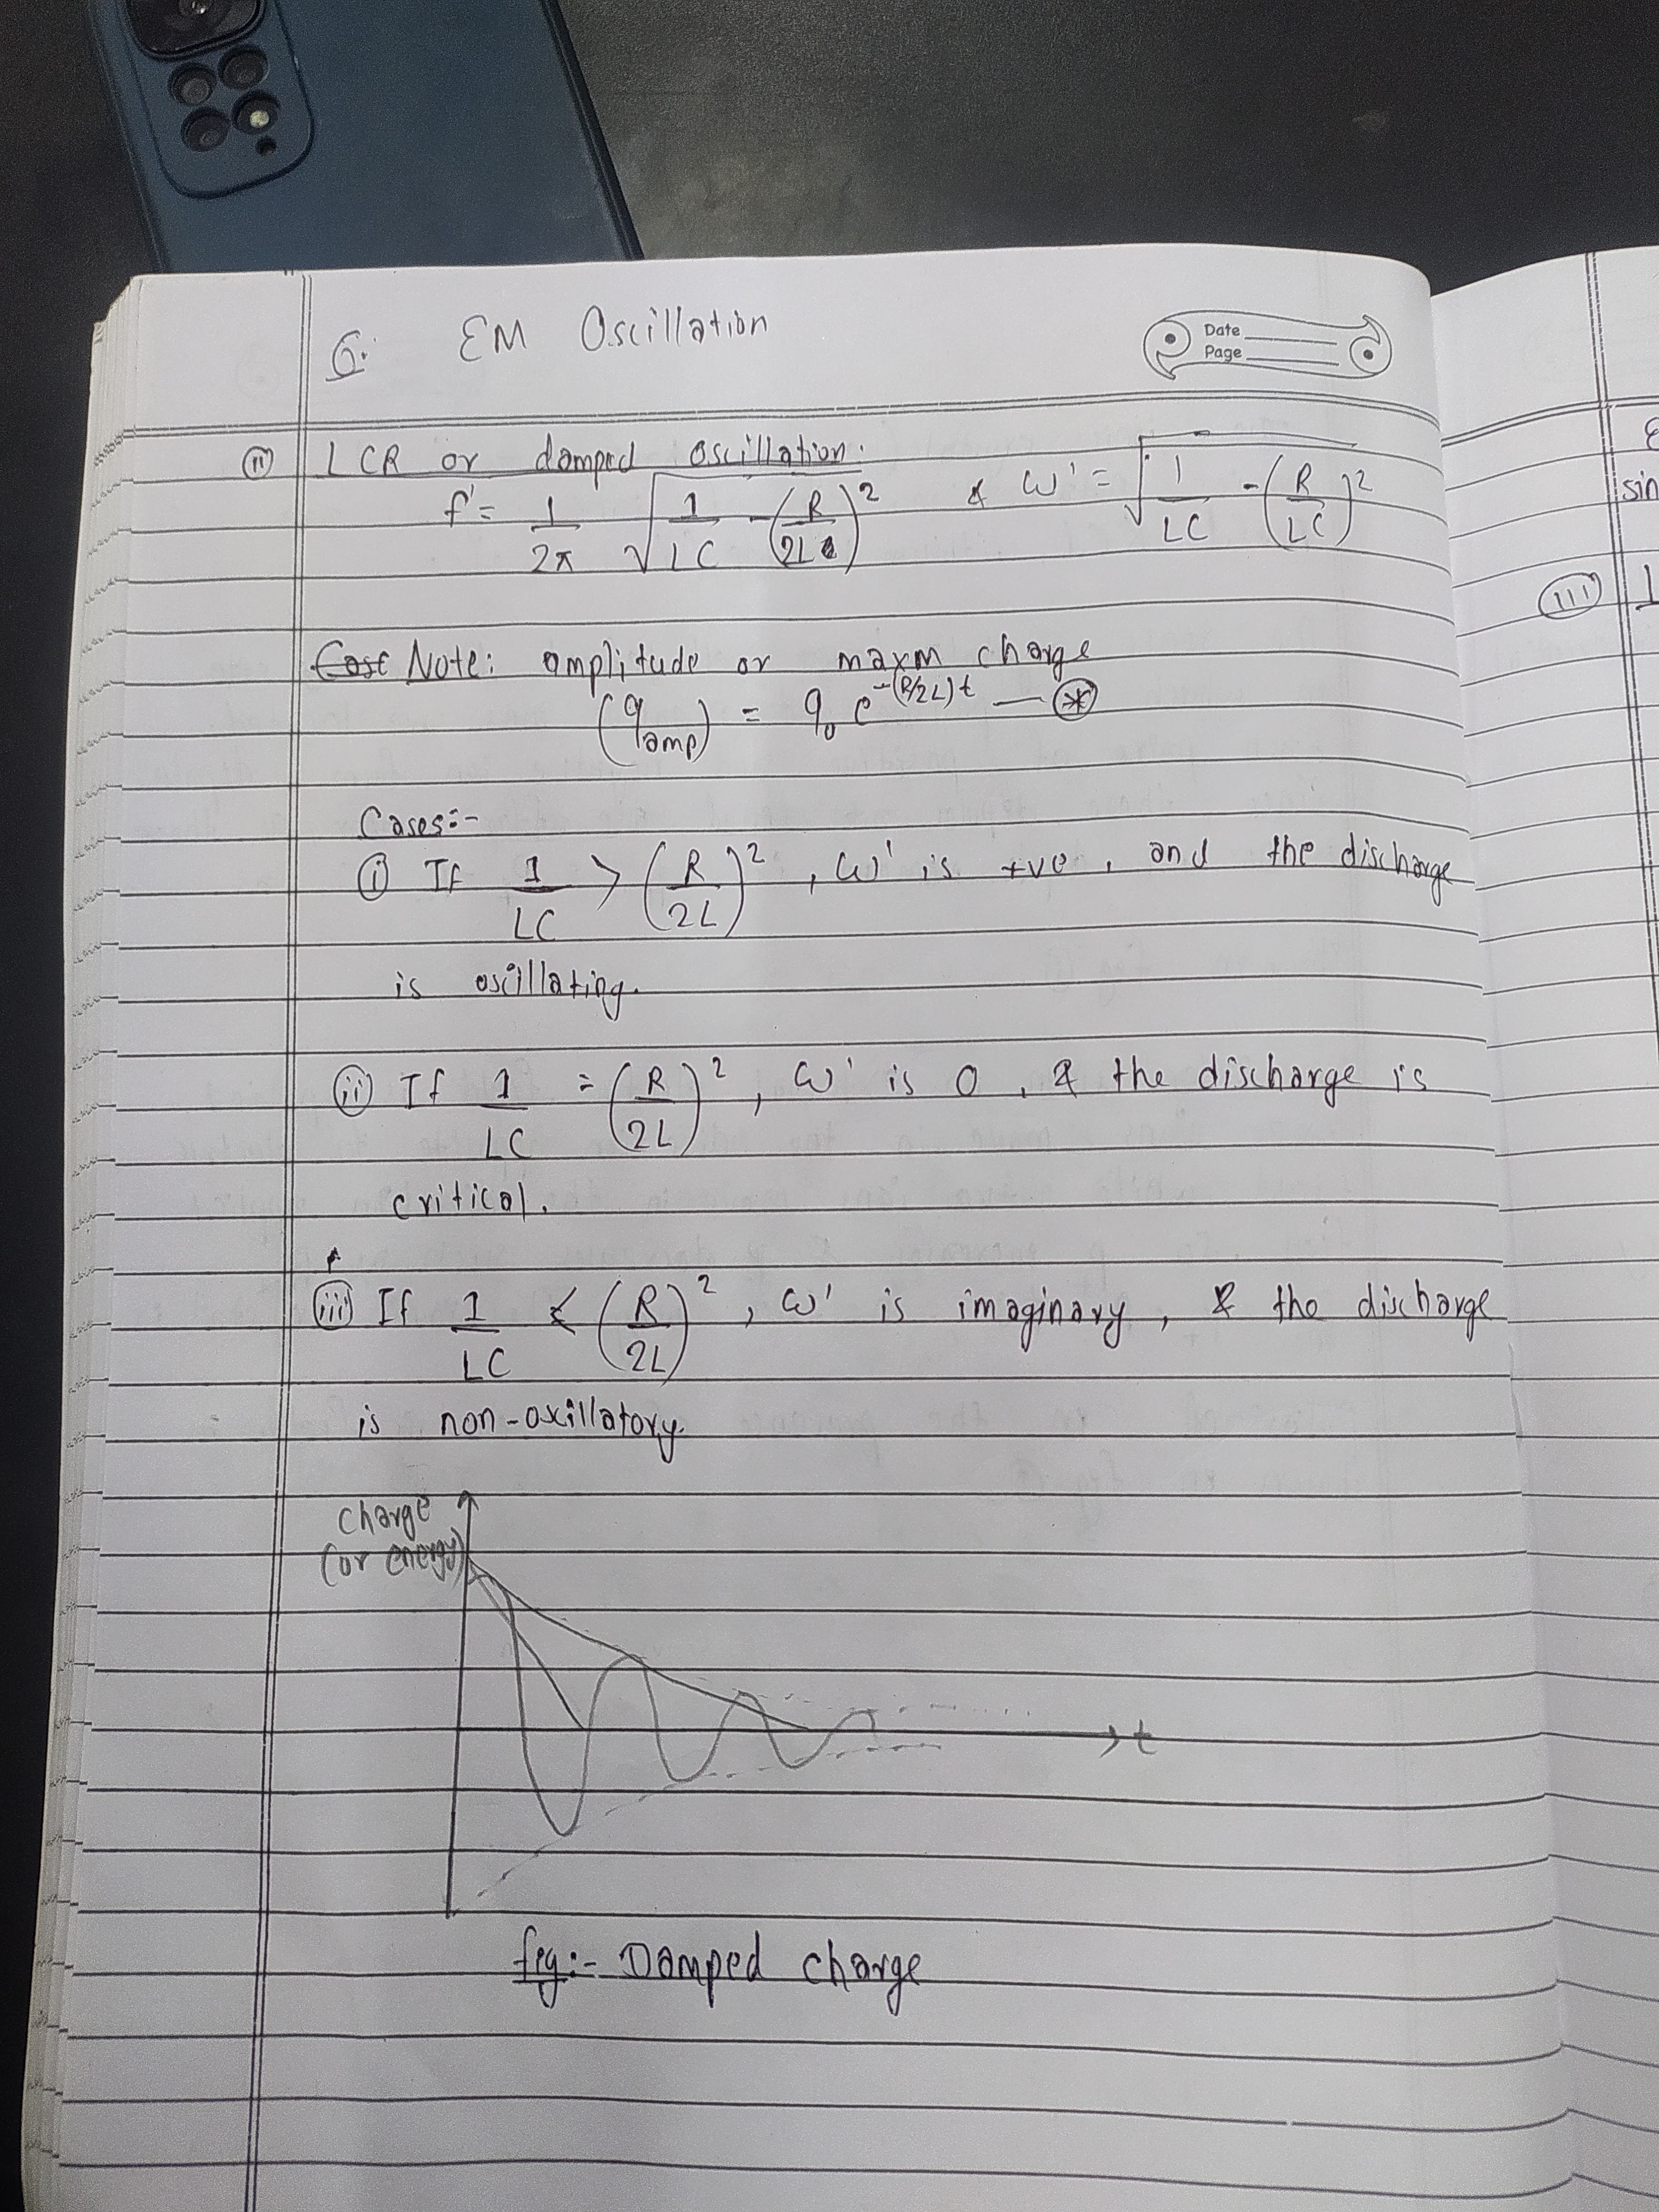 6. EM Oscillation
Date
Page
(ii) LCR or damped oscillation.
f' = 1/2π √(1/LC - (R/2L)^2) & ω' = √(1/LC - (R/LC)^2)
Note: amplitude or maxm charge
(q_amp) = q_0 e^-(R/2L)t — (*)
Cases:-
(i) If 1/LC > (R/2L)^2, ω' is +ve, and the discharge
is oscillating.
(ii) If 1/LC = (R/2L)^2, ω' is 0, & the discharge is
critical.
(iii) If 1/LC < (R/2L)^2, ω' is imaginary, & the discharge
is non-oscillatory.
charge
(or energy)
t
fig:- Damped charge
sin
(iii)